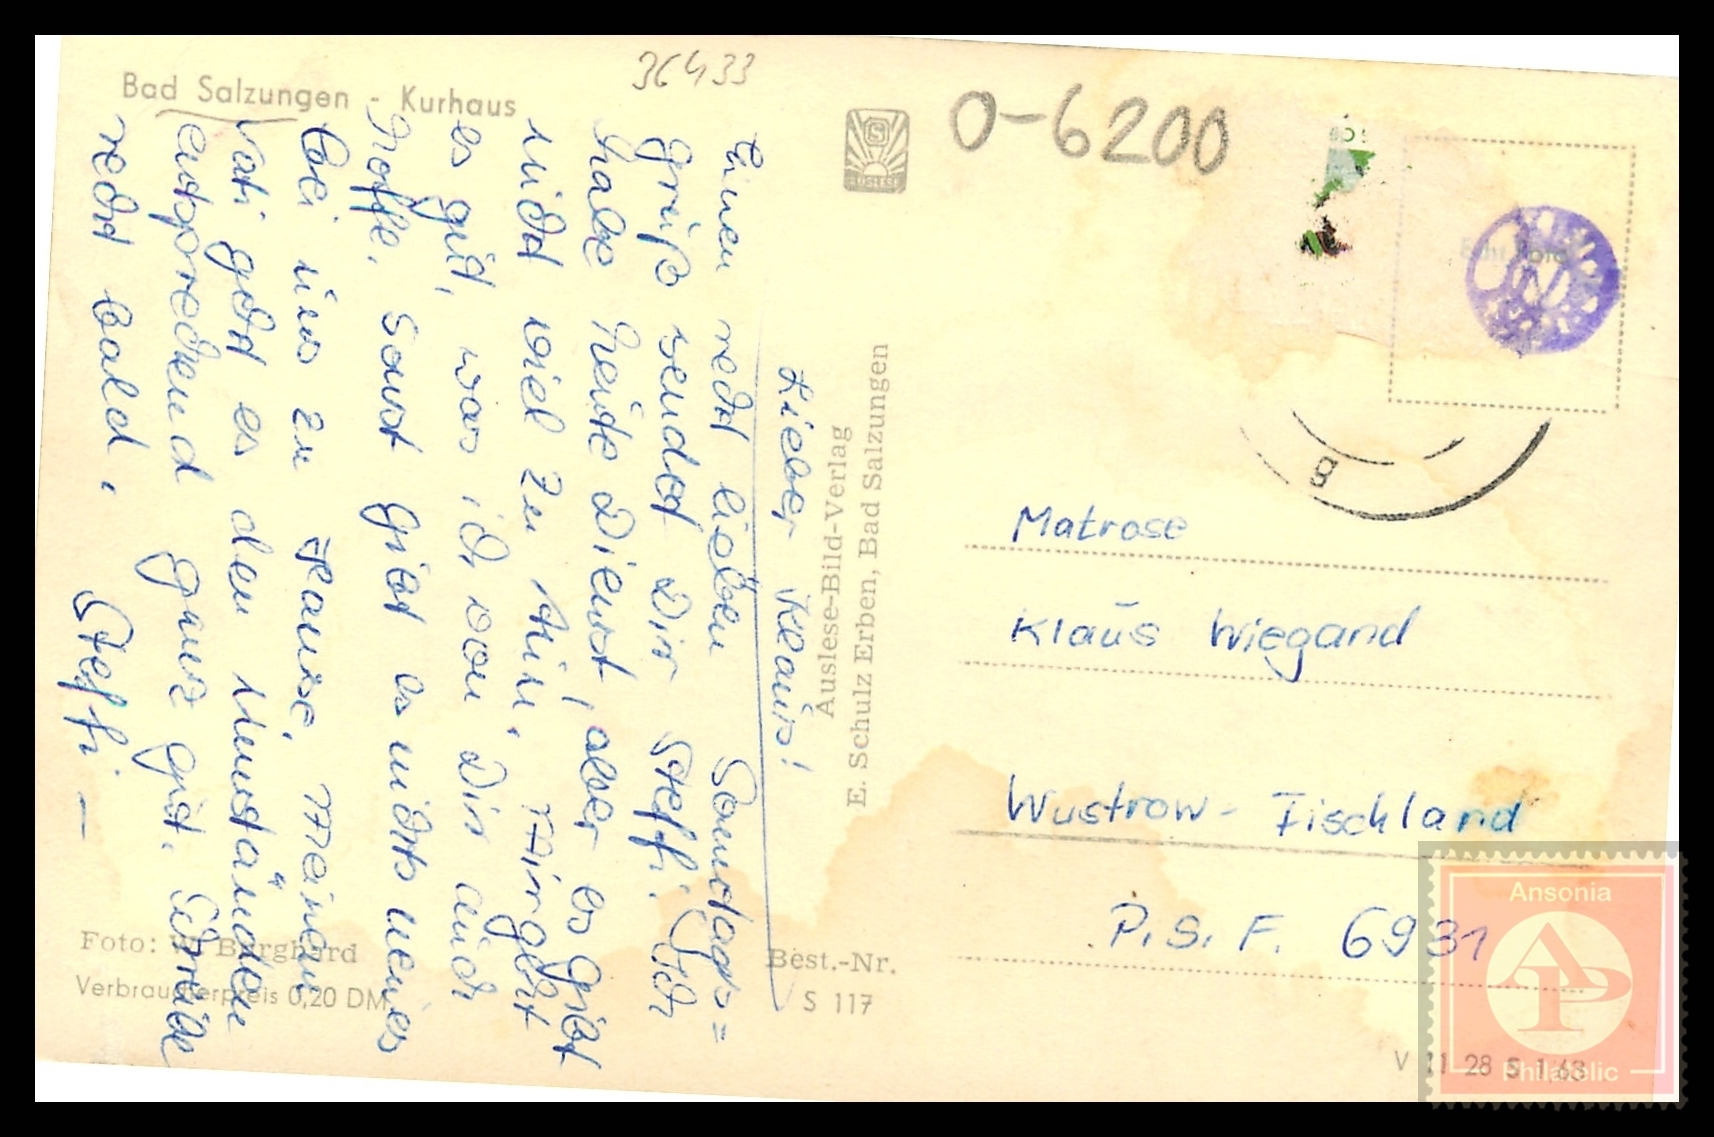 Bad Salzungen - Kurhaus
36433
0-6200
Lieber Klaus!
Einen recht lieben Sonntags=
gruß sendet Dir Steffi. Ich
habe heute Dienst, aber es gibt
nicht viel zu tun. Mir geht
es gut, was ich von Dir auch
hoffe. Sonst gibt es nichts neues
bei uns zu Hause. Meinem
Vati geht es den Umständen
entsprechend ganz gut. Schreibe
recht bald.
Steffi –
Auslese-Bild-Verlag
E. Schulz Erben, Bad Salzungen
AUSLESE
Echt Foto
g
Matrose
Klaus Wiegand
Wustrow - Fischland
P.S.F. 6931
Foto: W. Burghard
Verbraucherpreis 0,20 DM
Best.-Nr.
S 117
V 11 28 S 1,63
Ansonia
AP
Philatelic